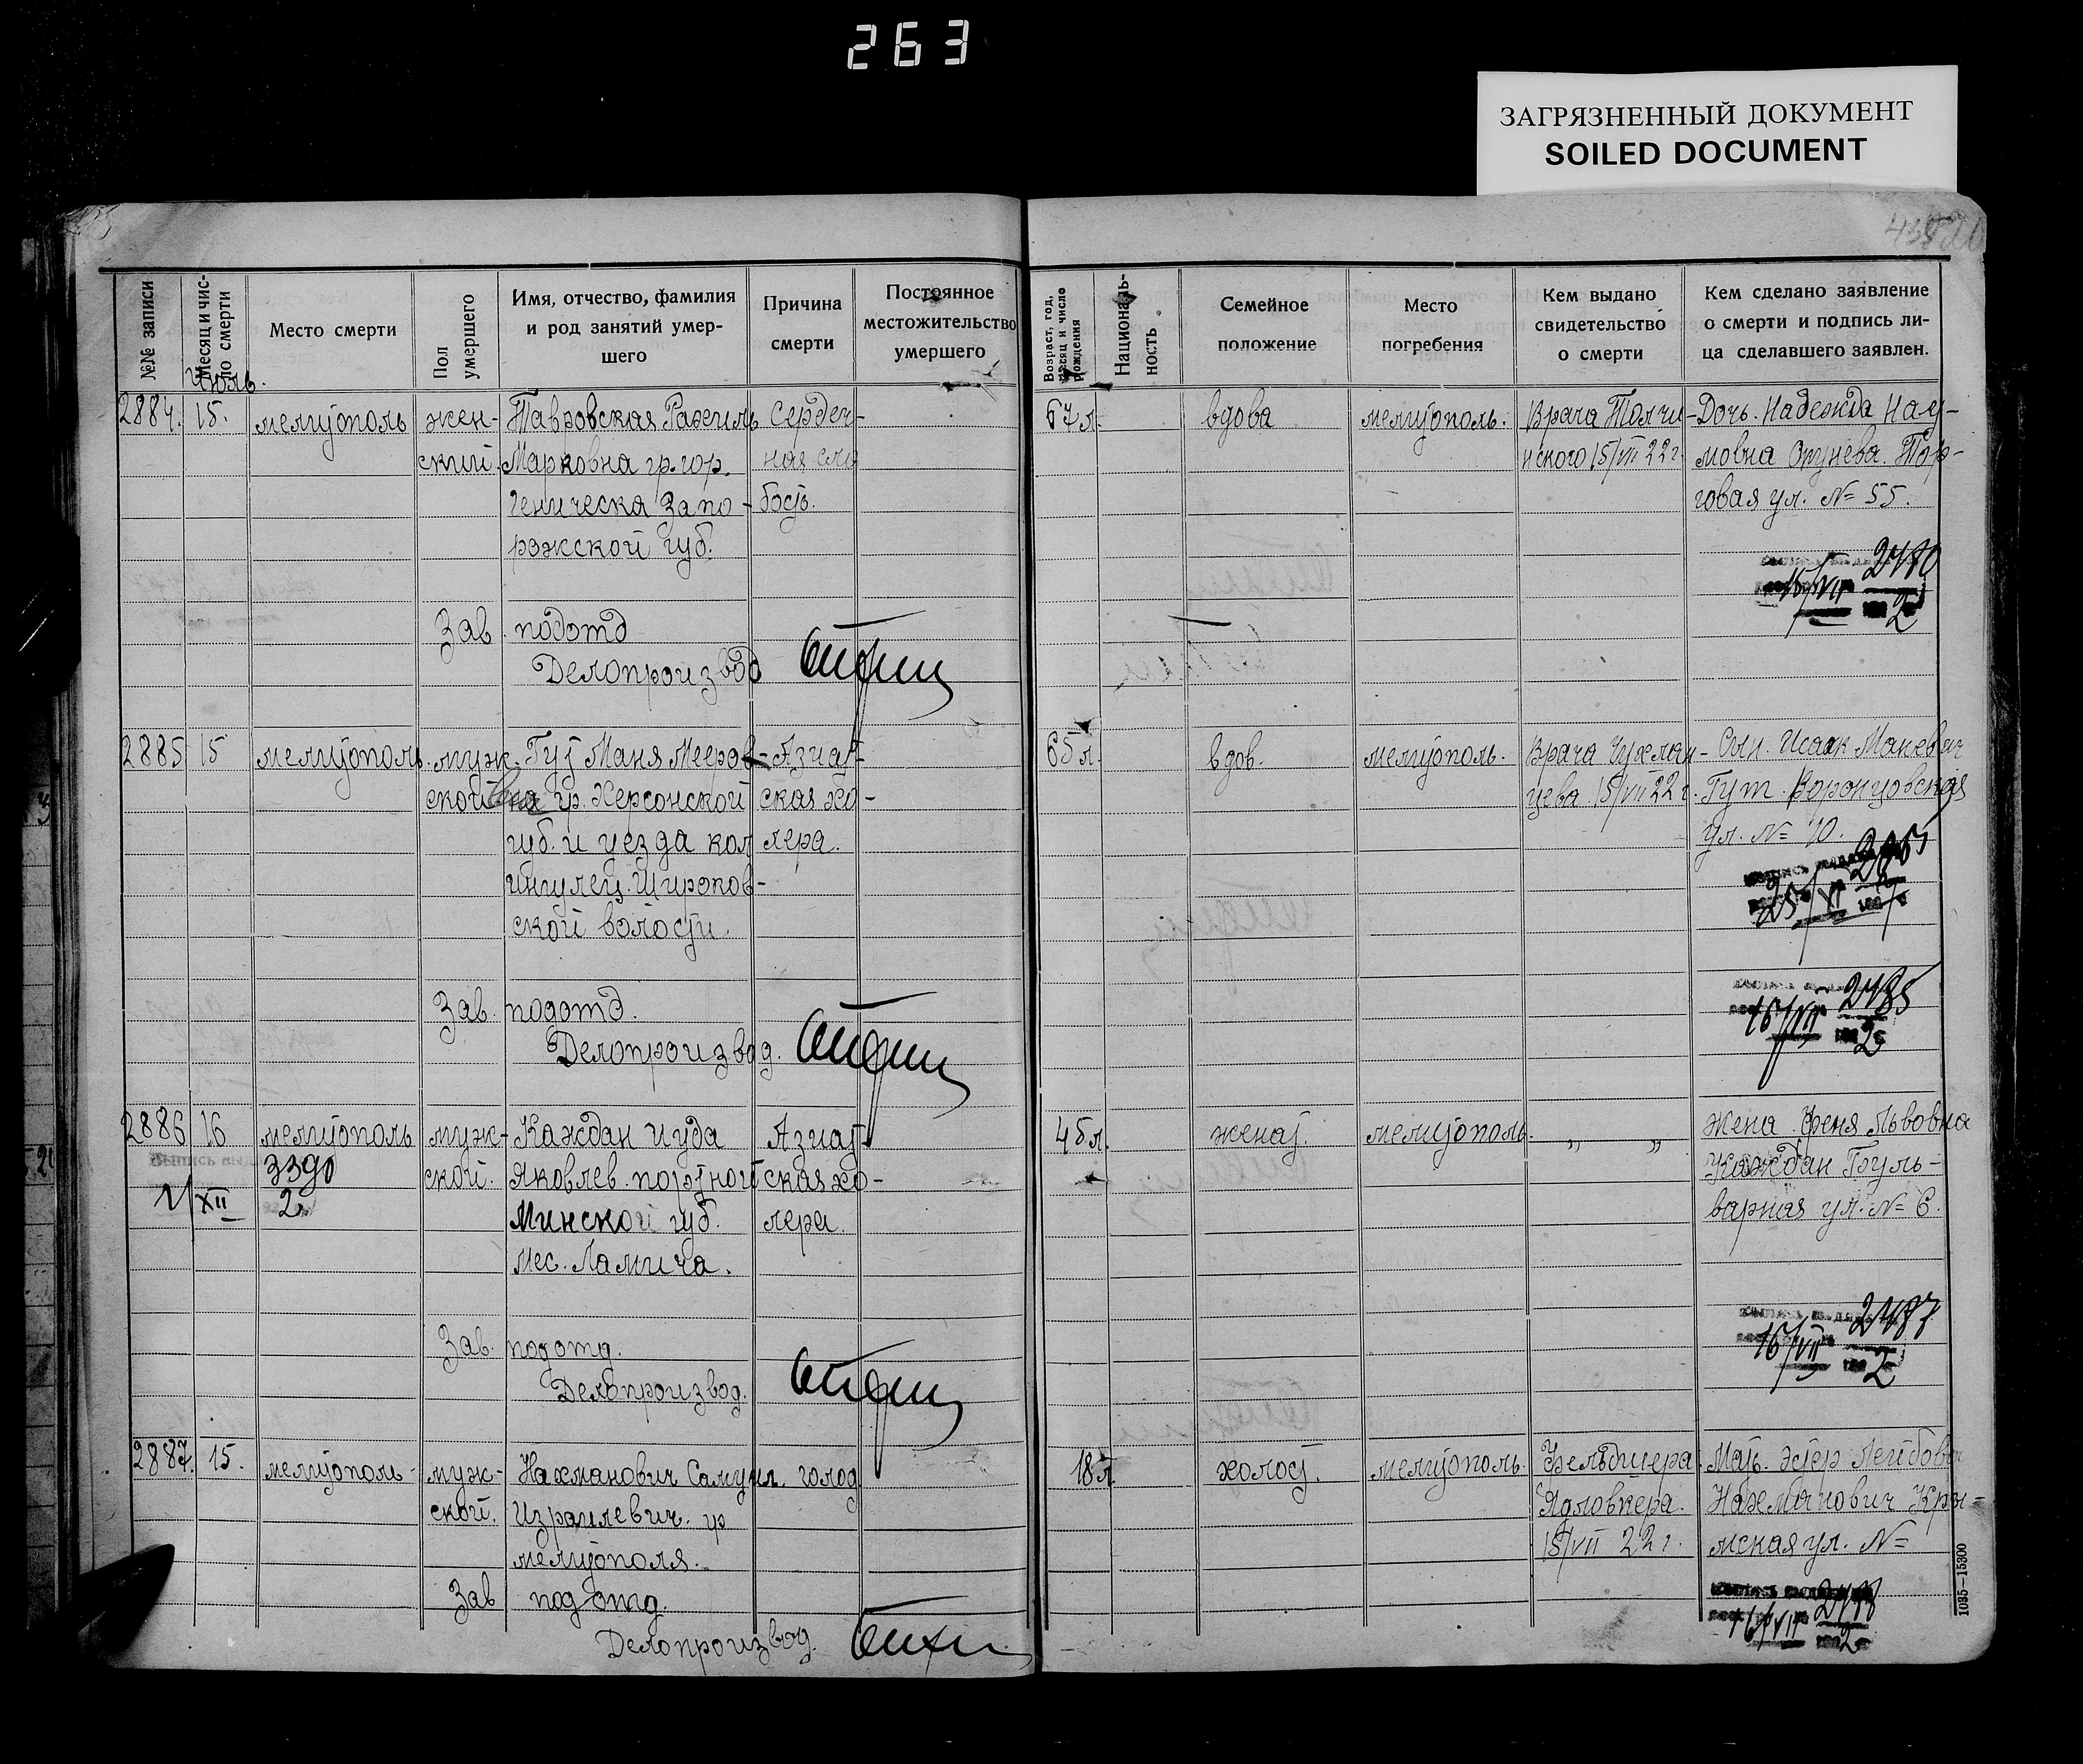 263
ЗАГРЯЗНЕННЫЙ ДОКУМЕНТ
SOILED DOCUMENT
№№ записи
Месяц и чис-
ло смерти
Место смерти
Пол
умершего
Имя, отчество, фамилия
и род занятий умер-
шего
Причина
смерти
Постоянное
местожительство
умершего
Возраст, год,
месяц и число
рождения
Националь-
ность
Семейное
положение
Место
погребения
Кем выдано
свидетельство
о смерти
Кем сделано заявление
о смерти и подпись ли-
ца сделавшего заявлен.
Июль.
2884. 15. мелитополь жен-
ский.
Тавровская Рахиль
Марковна гр. гор.
Геническа Запо-
рожской губ.
Сердеч-
ная сла
бость.
67 л. вдова мелитополь.
Врача Толчи-
нского 15/VII 22 г.
Дочь. Надежда Нау-
мовна Окунева. Тор-
говая ул. № 55.
15/VII 2480
2
Зав. подотд
Делопроизвод
2885 15 мелитополь. муж-
ской
Гут Маня Мееров-
на гр. Херсонской
губ. и уезда кол
ингулец. Широков-
ской волости.
Азиат-
ская хо-
лера.
65 л. вдов. мелитополь.
Врача Чухлан-
цева 15/VII 22 г.
Сын. Исаак Маневич
Гут. Воронцовская
ул. № 10.
16/VII 2485
2
Зав. подотд.
Делопроизвод.
2886 16 мелитополь муж-
ской.
3390
XII 2
Каждан Иуда
Яковлев. портной
Минской губ.
мес.
Азиат-
ская хо-
лера.
45 л. женат. мелитополь. „ „
Жена. Феня Львовна
Каждан Буль-
варная ул. № 6.
16/VII 2487
2
Зав. подотд.
Делопроизвод.
2887. 15. мелитополь муж-
ской.
Нахманович Самуил.
Израилевич. гр
мелитополя.
голод
18 л. холост. мелитополь.
Фельдшера
Ядловкера.
15/VII 22 г.
Мать. Эстер
Нахманович Кры-
мская ул. №
16/VII 2488
2
Зав подотд.
Делопроизвод.
1085—15300